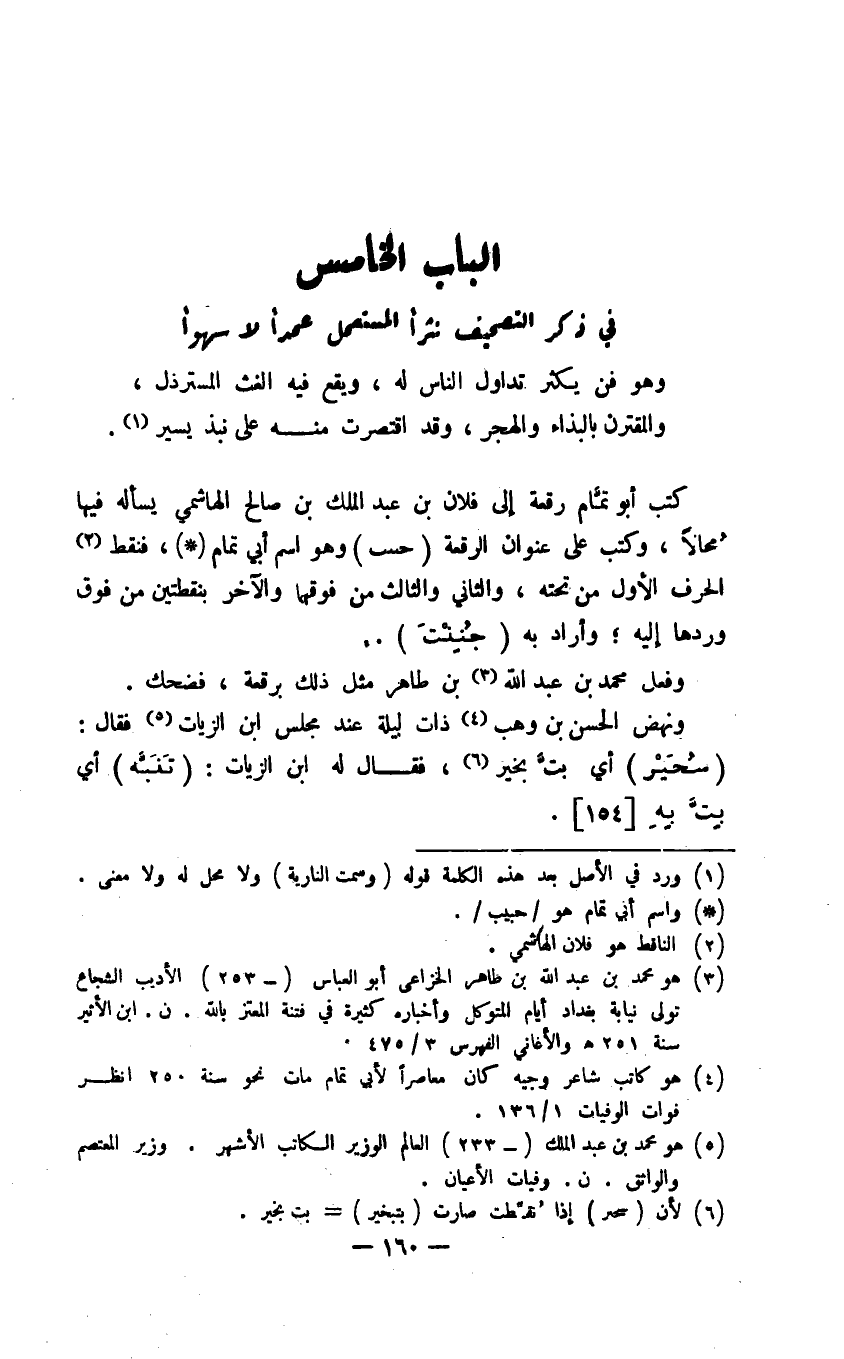 الباب الخامس
في ذكر التصحيف نثرأ المستعمل عمدأ لا سهوأ
وهو فن يكثر تداول الناس له ، ويقع فيه الغث المسترذل ،
والمقترن بالبذاء والهجر ، وقد اقتصرت منه على نبذ يسير (١) .
كتب أبو تمَّام رقعة إلى فلان بن عبد الملك بن صالح الهاشمي يسأله فيها
ُمحالاً ، وكتب على عنوان الرقعة ( حسب ) وهو اسم أبي تمام (*) ، فنقط (٢)
الحرف الأول من تحته ، والثاني والثالث من فوقها والآخر بنقطتين من فوق
وردها إليه ؛ وأراد به ( جُنِنْتَ ) ..
وفعل محمد بن عبد الله (٣) بن طاهر مثل ذلك برقعة ، فضحك .
ونهض الحسن بن وهب (٤) ذات ليلة عند مجلس ابن الزيات (٥) فقال :
( سُحَيْر ) أي بتَّ بخير (٦) ، فقال له ابن الزيات : ( تَنَبَّه ) أي
بيتَّ بِيهِ [١٥٤] .
(١) ورد في الأصل بعد هذه الكلمة قوله ( وسمت النارية ) ولا محل له ولا معنى .
(*) واسم أبي تمام هو / حبيب / .
(٢) الناقط هو فلان الهاشمي .
(٣) هو محمد بن عبد الله بن طاهر الخزاعي أبو العباس ( ـ ٢٥٣ ) الأديب الشجاع
تولى نيابة بغداد أيام المتوكل وأخباره كثيرة في فتنة المعتز بالله . ن . ابن الأثير
سنة ٢٥١ ه والأغاني الفهرس ٣ / ٤٧٥ .
(٤) هو كاتب شاعر وجيه كان معاصراً لأبي تمام مات نحو سنة ٢٥٠ انظر
فوات الوفيات ١ / ١٣٦ .
(٥) هو محمد بن عبد الملك ( ـ ٢٣٣ ) العالم الوزير الكاتب الأشهر . وزير المعتصم
والواثق . ن . وفيات الأعيان .
(٦) لأن ( سحر ) إذا ُنقّطت صارت ( بتبخير ) = بت بخير .
— ١٦٠ —